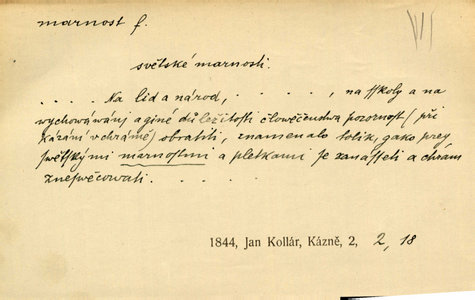 marnost f.
světské marnosti.
. . . . . Na lid a národ, . . . . . . , na sskoly a na
wychowáwánj a giné důležitosti člowěčenstwa pozornost (při
kázání w chrámě) obrátiti, znamenalo tolik, gako prey
swětskými marnostmi a pletkami se zanásseti a chrám
zneswěcowati. . . . . .
1844, Jan Kollár, Kázně, 2, 2, 18